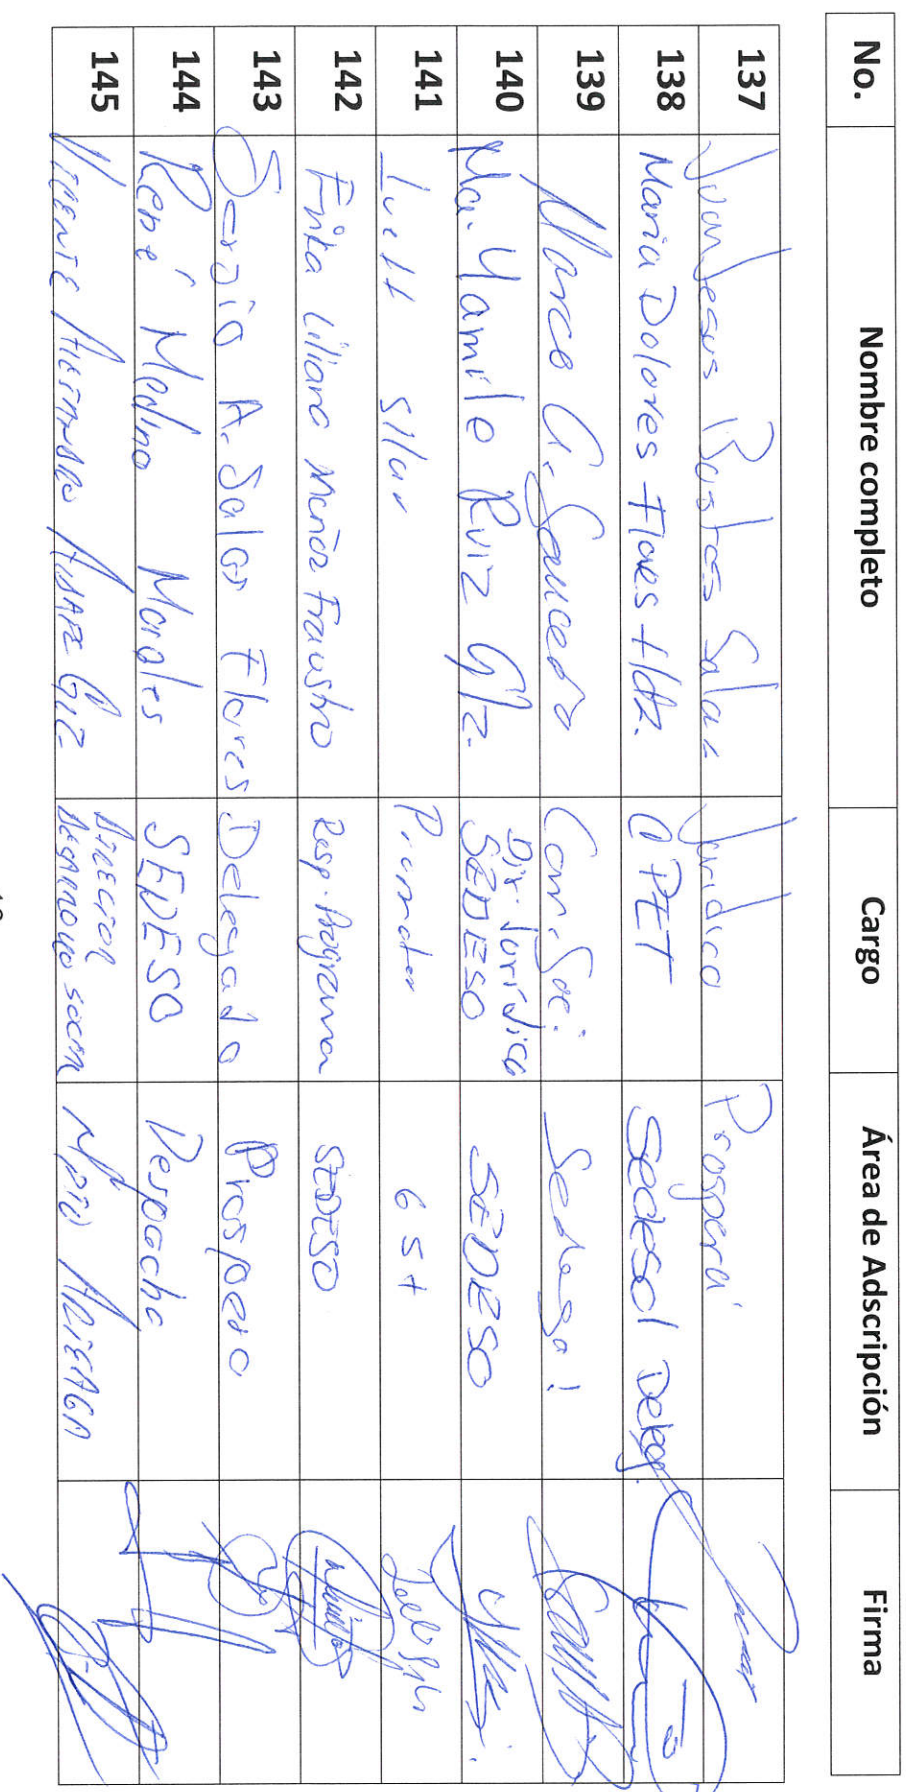 No. Nombre completo Cargo Área de Adscripción Firma
137 Juan Jesus Bustos Salas Juridico Prospera
138 Maria Dolores Flores Hdz. PET Sedesol Deleg.
139 Marco A. Saucedo Com. Soc. Sedesol
140 Ma. Yamile Ruiz Glz. Dir. Jurídico SEDESO SEDESO
141
142 Erika Liliana Muñoz Fraustro Resp. Programa SEDESO
143 Sergio A. Salas Flores Delegado Prospera
144 René Medina Morales SEDESO Despacho
145 VICENTE ALEJANDRO DIRECTOR DESARROLLO SOCIAL MPIO ARTEAGA